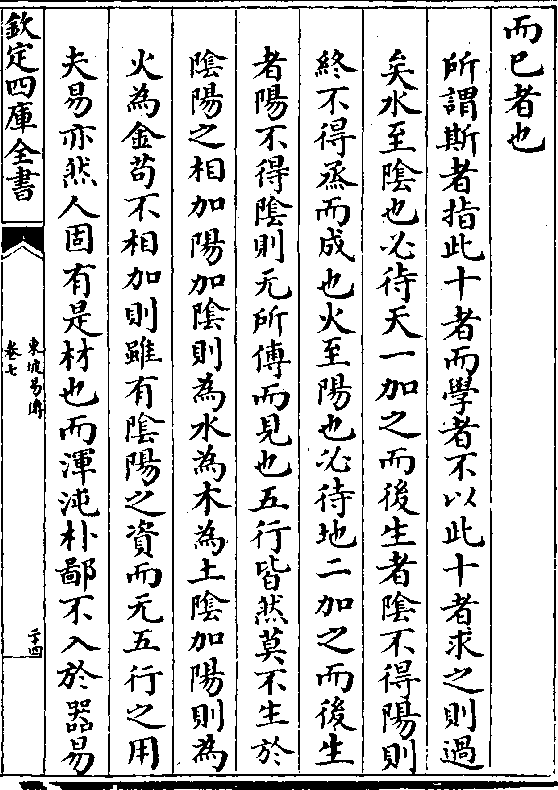 而已者也
所謂斯者指此十者而學者不以此十者求之則過
矣水至陰也必待天一加之而後生者陰不得陽則
終不得烝而成也火至陽也必待地二加之而後生
者陽不得陰則无所傅而見也五行皆然莫不生於
陰陽之相加陽加陰則為水為木為土陰加陽則為
火為金苟不相加則雖有陰陽之資而无五行之用
夫易亦然人固有是材也而渾沌朴鄙不入於器易
欽定四庫全書
東坡易傳
卷七
二十四